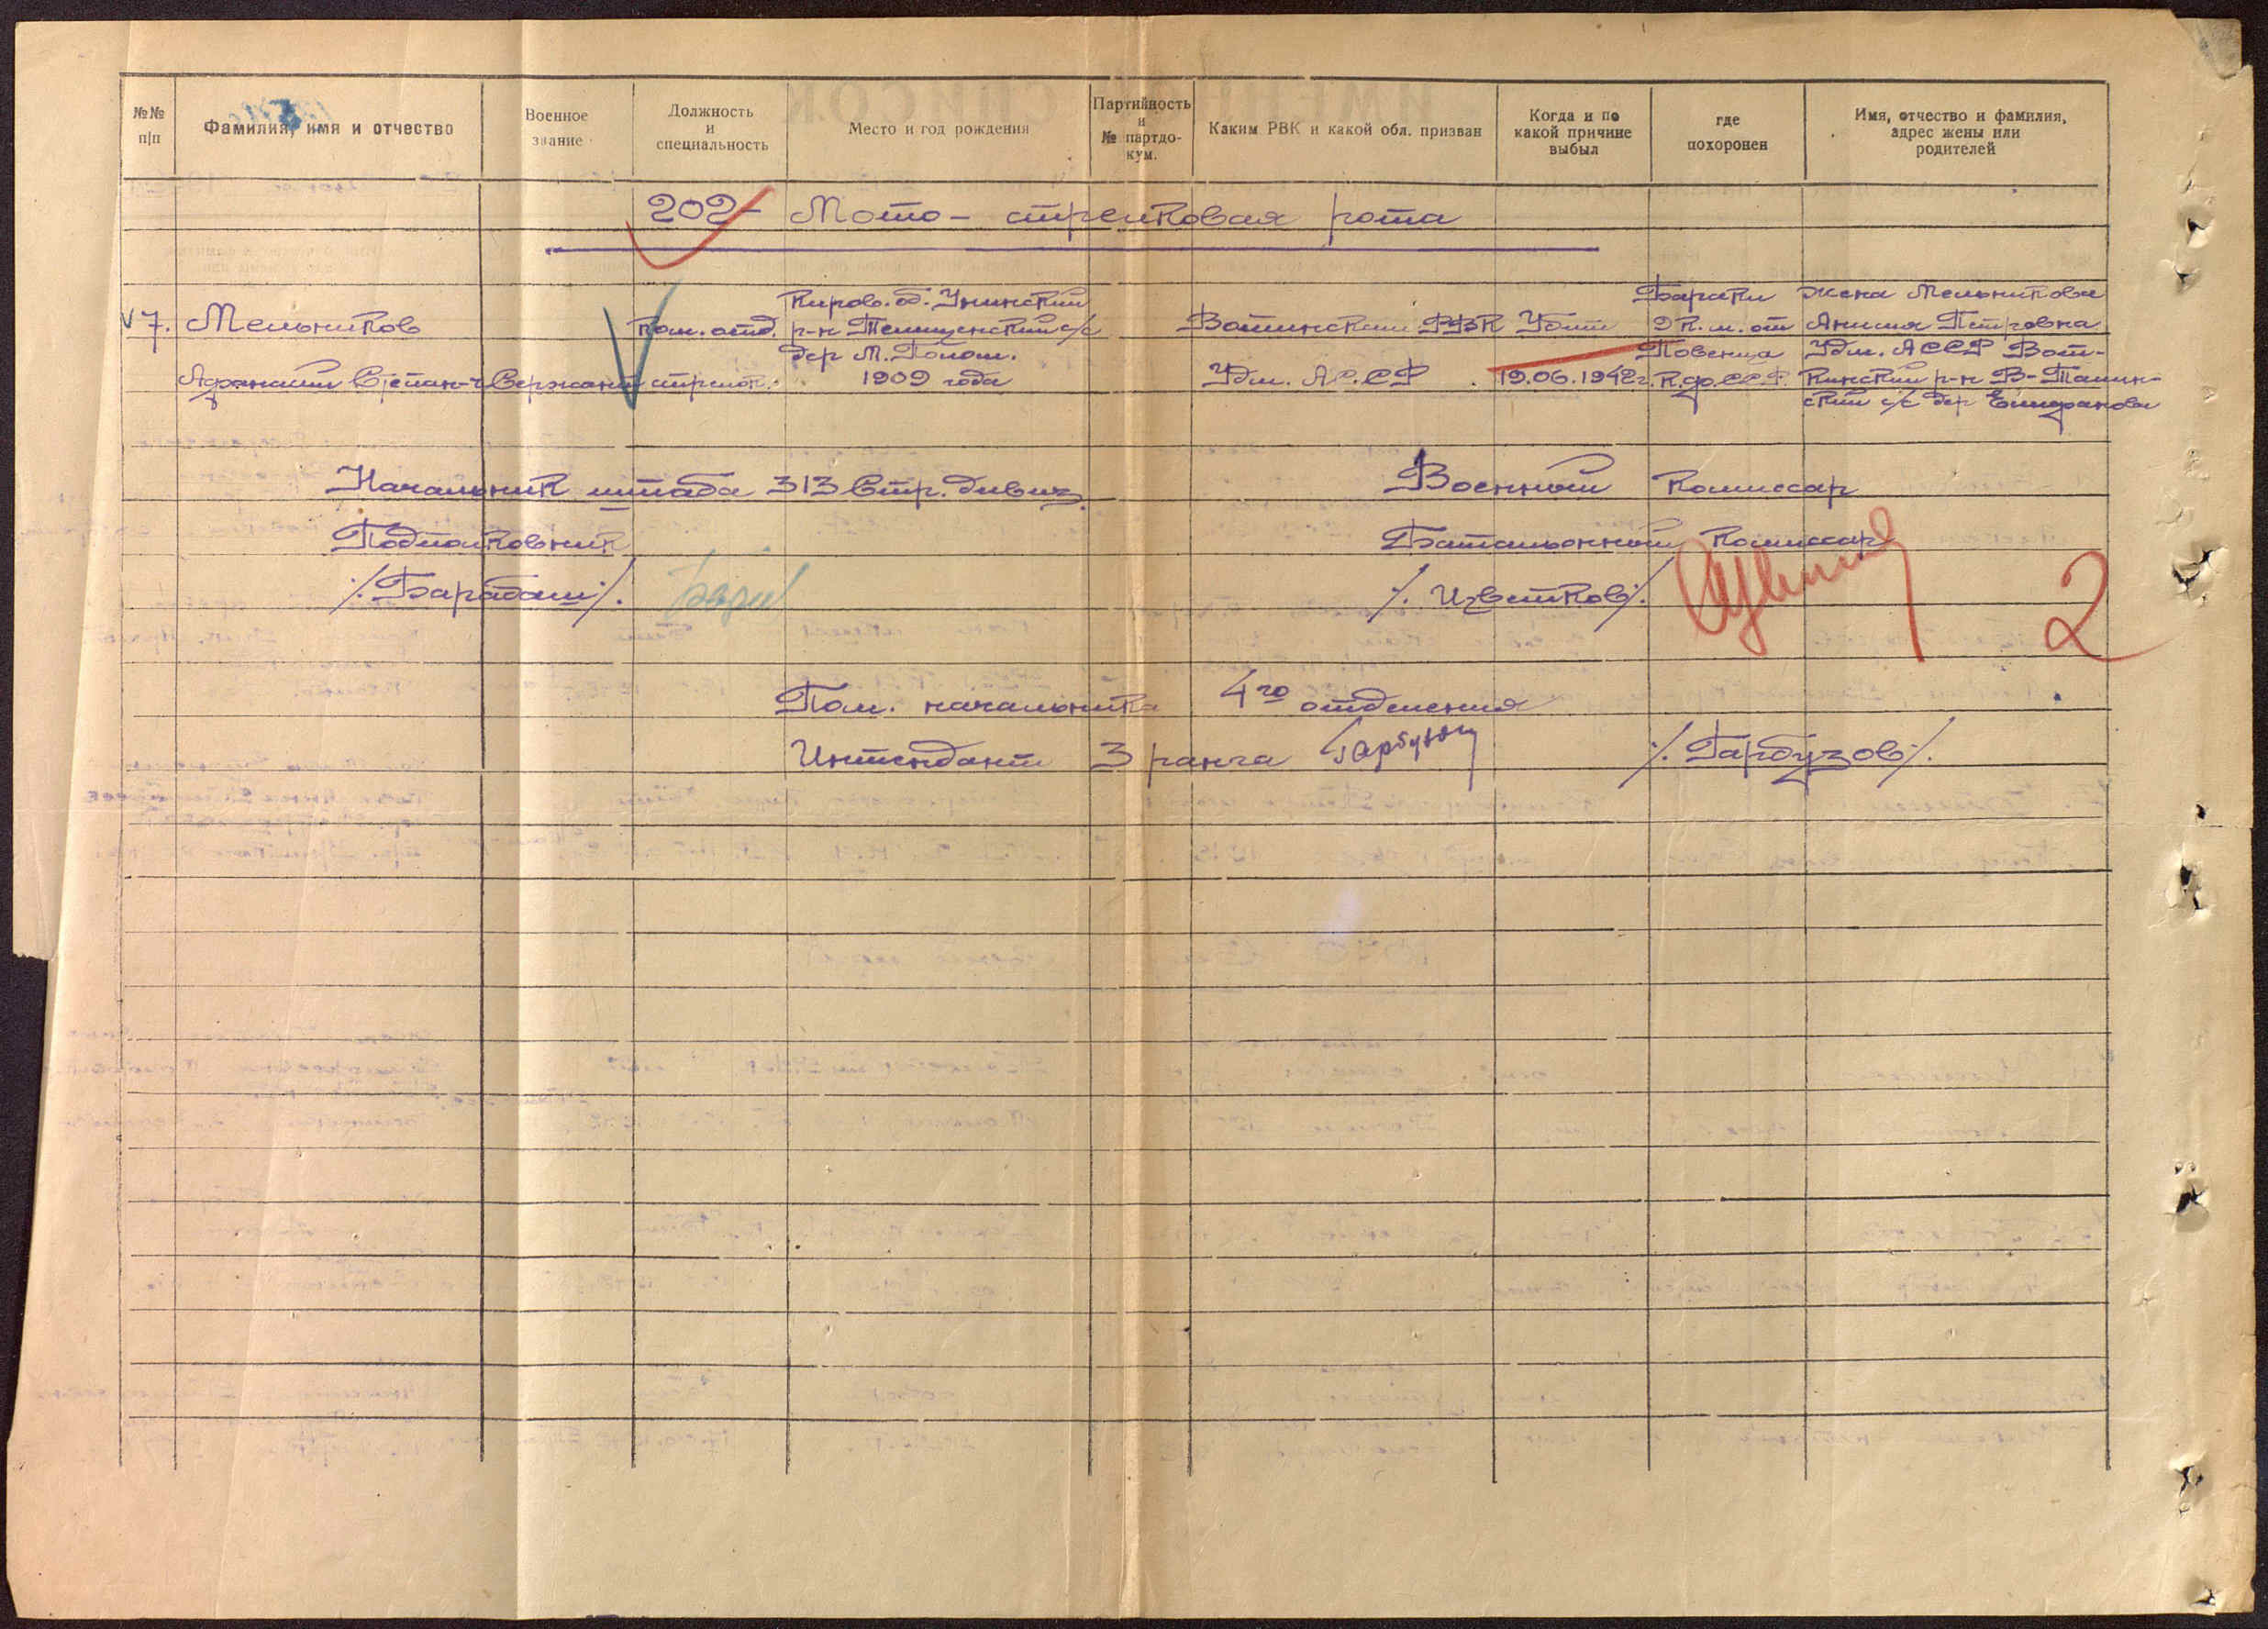 №№ п/п
Фамилия, имя и отчество
Военное звание
Должность и специальность
Место и год рождения
Партийность и № партдокум.
Каким РВК и какой обл. призван
Когда и по какой причине выбыл
где похоронен
Имя, отчество и фамилия, адрес жены или родителей
202- Мото-стрелковая рота
7. Мельников
Афанасий Степан-ч
Сержант
Ком. отд.
стрелок.
Киров. об. Унинский
р-н
с/с
дер М. Полом.
1909 года
Воткинский РВК
Удм. АССР
Убит
19.06.1942г.
Бараки
9 к.м. от
Повенца
К.ф.ССР.
жена Мельникова
Анисия Петровна
Удм. АССР Вот-
кинский р-н
ский с/с дер
Начальник штаба 313 Стр. дивиз.
Военный Комиссар
Подполковник
Батальонный Комиссар
/.Барабаш/.
/. Цветков/.
2
Пом. начальника 4го отделения
Интендант 3 ранга
/.Гарбузов/.